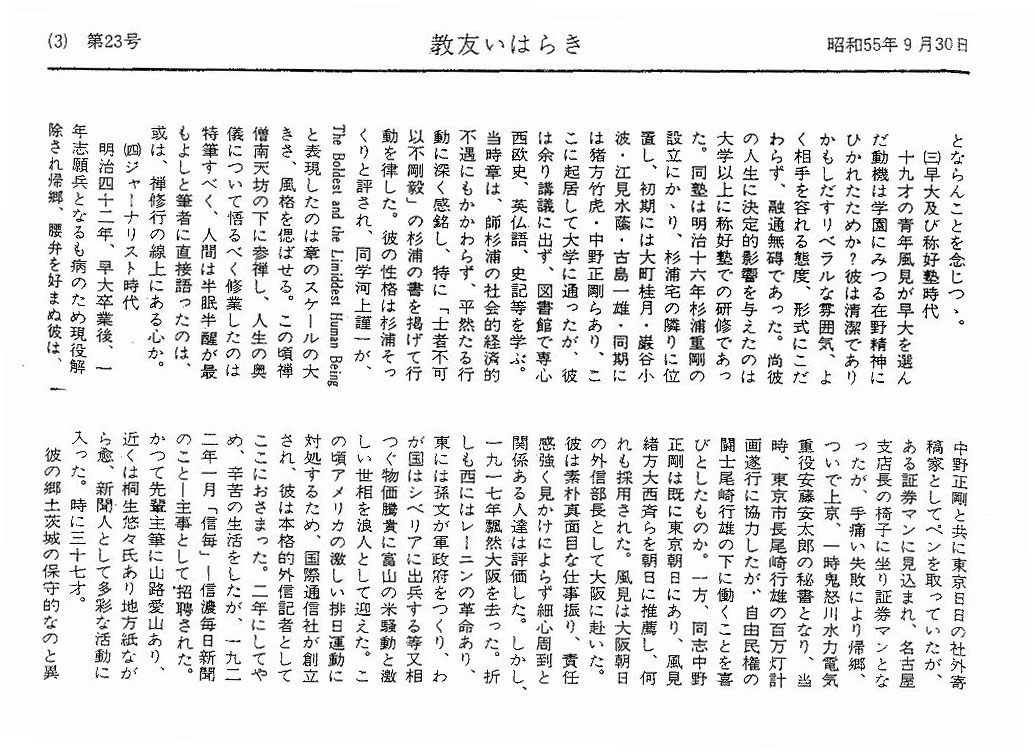 (3) 第23号
教友いはらき
昭和55年9月30日
とならんことを念じつゝ。
㈢早大及び称好塾時代
十九才の青年風見が早大を選ん
だ動機は学園にみつる在野精神に
ひかれたためか?彼は清潔であり
かもしだすリベラルな雰囲気、よ
く相手を容れる態度、形式にこだ
わらず、融通無碍であった。尚彼
の人生に決定的影響を与えたのは
大学以上に称好塾での研修であっ
た。同塾は明治十六年杉浦重剛の
設立にかゝり、杉浦宅の隣りに位
置し、初期には大町桂月・巌谷小
彼・江見水蔭・古島一雄・同期に
は猪方竹虎・中野正剛らあり、こ
こに起居して大学に通ったが、彼
は余り講議に出ず、図書館で専心
西欧史、英仏語、史記等を学ぶ。
当時章は、師杉浦の社会的経済的
不遇にもかかわらず、平然たる行
動に深く感銘し、特に「士者不可
以不剛毅」の杉浦の書を掲げて行
動を律した。彼の性格は杉浦そっ
くりと評され、同学河上謹一が、
The Boldest and the Limiddest Human Being
と表現したのは章のスケールの大
きさ、風格を偲ばせる。この頃禅
僧南天坊の下に参禅し、人生の奥
儀について悟るべく修業したのは
特筆すべく、人間は半眠半醒が最
もよしと筆者に直接語ったのは、
或は、禅修行の線上にある心か。
㈣ジャーナリスト時代
明治四十二年、早大卒業後、一
年志願兵となるも病のため現役解
除され帰郷、腰弁を好まぬ彼は、
中野正剛と共に東京日日の社外寄
稿家としてペンを取っていたが、
ある証券マンに見込まれ、名古屋
支店長の椅子に坐り証券マンとな
ったが、手痛い失敗により帰郷、
ついで上京、一時鬼怒川水力電気
重役安藤安太郎の秘書となり、当
時、東京市長尾崎行雄の百万灯計
画遂行に協力したが、自由民権の
闘士尾崎行雄の下に働くことを喜
びとしたものか。一方、同志中野
正剛は既に東京朝日にあり、風見
緒方大西斉らを朝日に推薦し、何
れも採用された。風見は大阪朝日
の外信部長として大阪に赴いた。
彼は素朴真面目な仕事振り、責任
感強く見かけによらず細心周到と
関係ある人達は評価した。しかし、
一九一七年飄然大阪を去った。折
しも西にはレーニンの革命あり、
東には孫文が軍政府をつくり、わ
が国はシベリアに出兵する等又相
つぐ物価騰貴に富山の米騒動と激
しい世相を浪人として迎えた。こ
の頃アメリカの激しい排日運動に
対処するため、国際通信社が創立
され、彼は本格的外信記者として
ここにおさまった。二年にしてや
め、辛苦の生活をしたが、一九二
二年一月「信毎」―信濃毎日新聞
のこと―主事として招聘された。
かつて先輩主筆に山路愛山あり、
近くは桐生悠々氏あり地方紙なが
ら愈、新聞人として多彩な活動に
入った。時に三十七才。
彼の郷土茨城の保守的なのと異